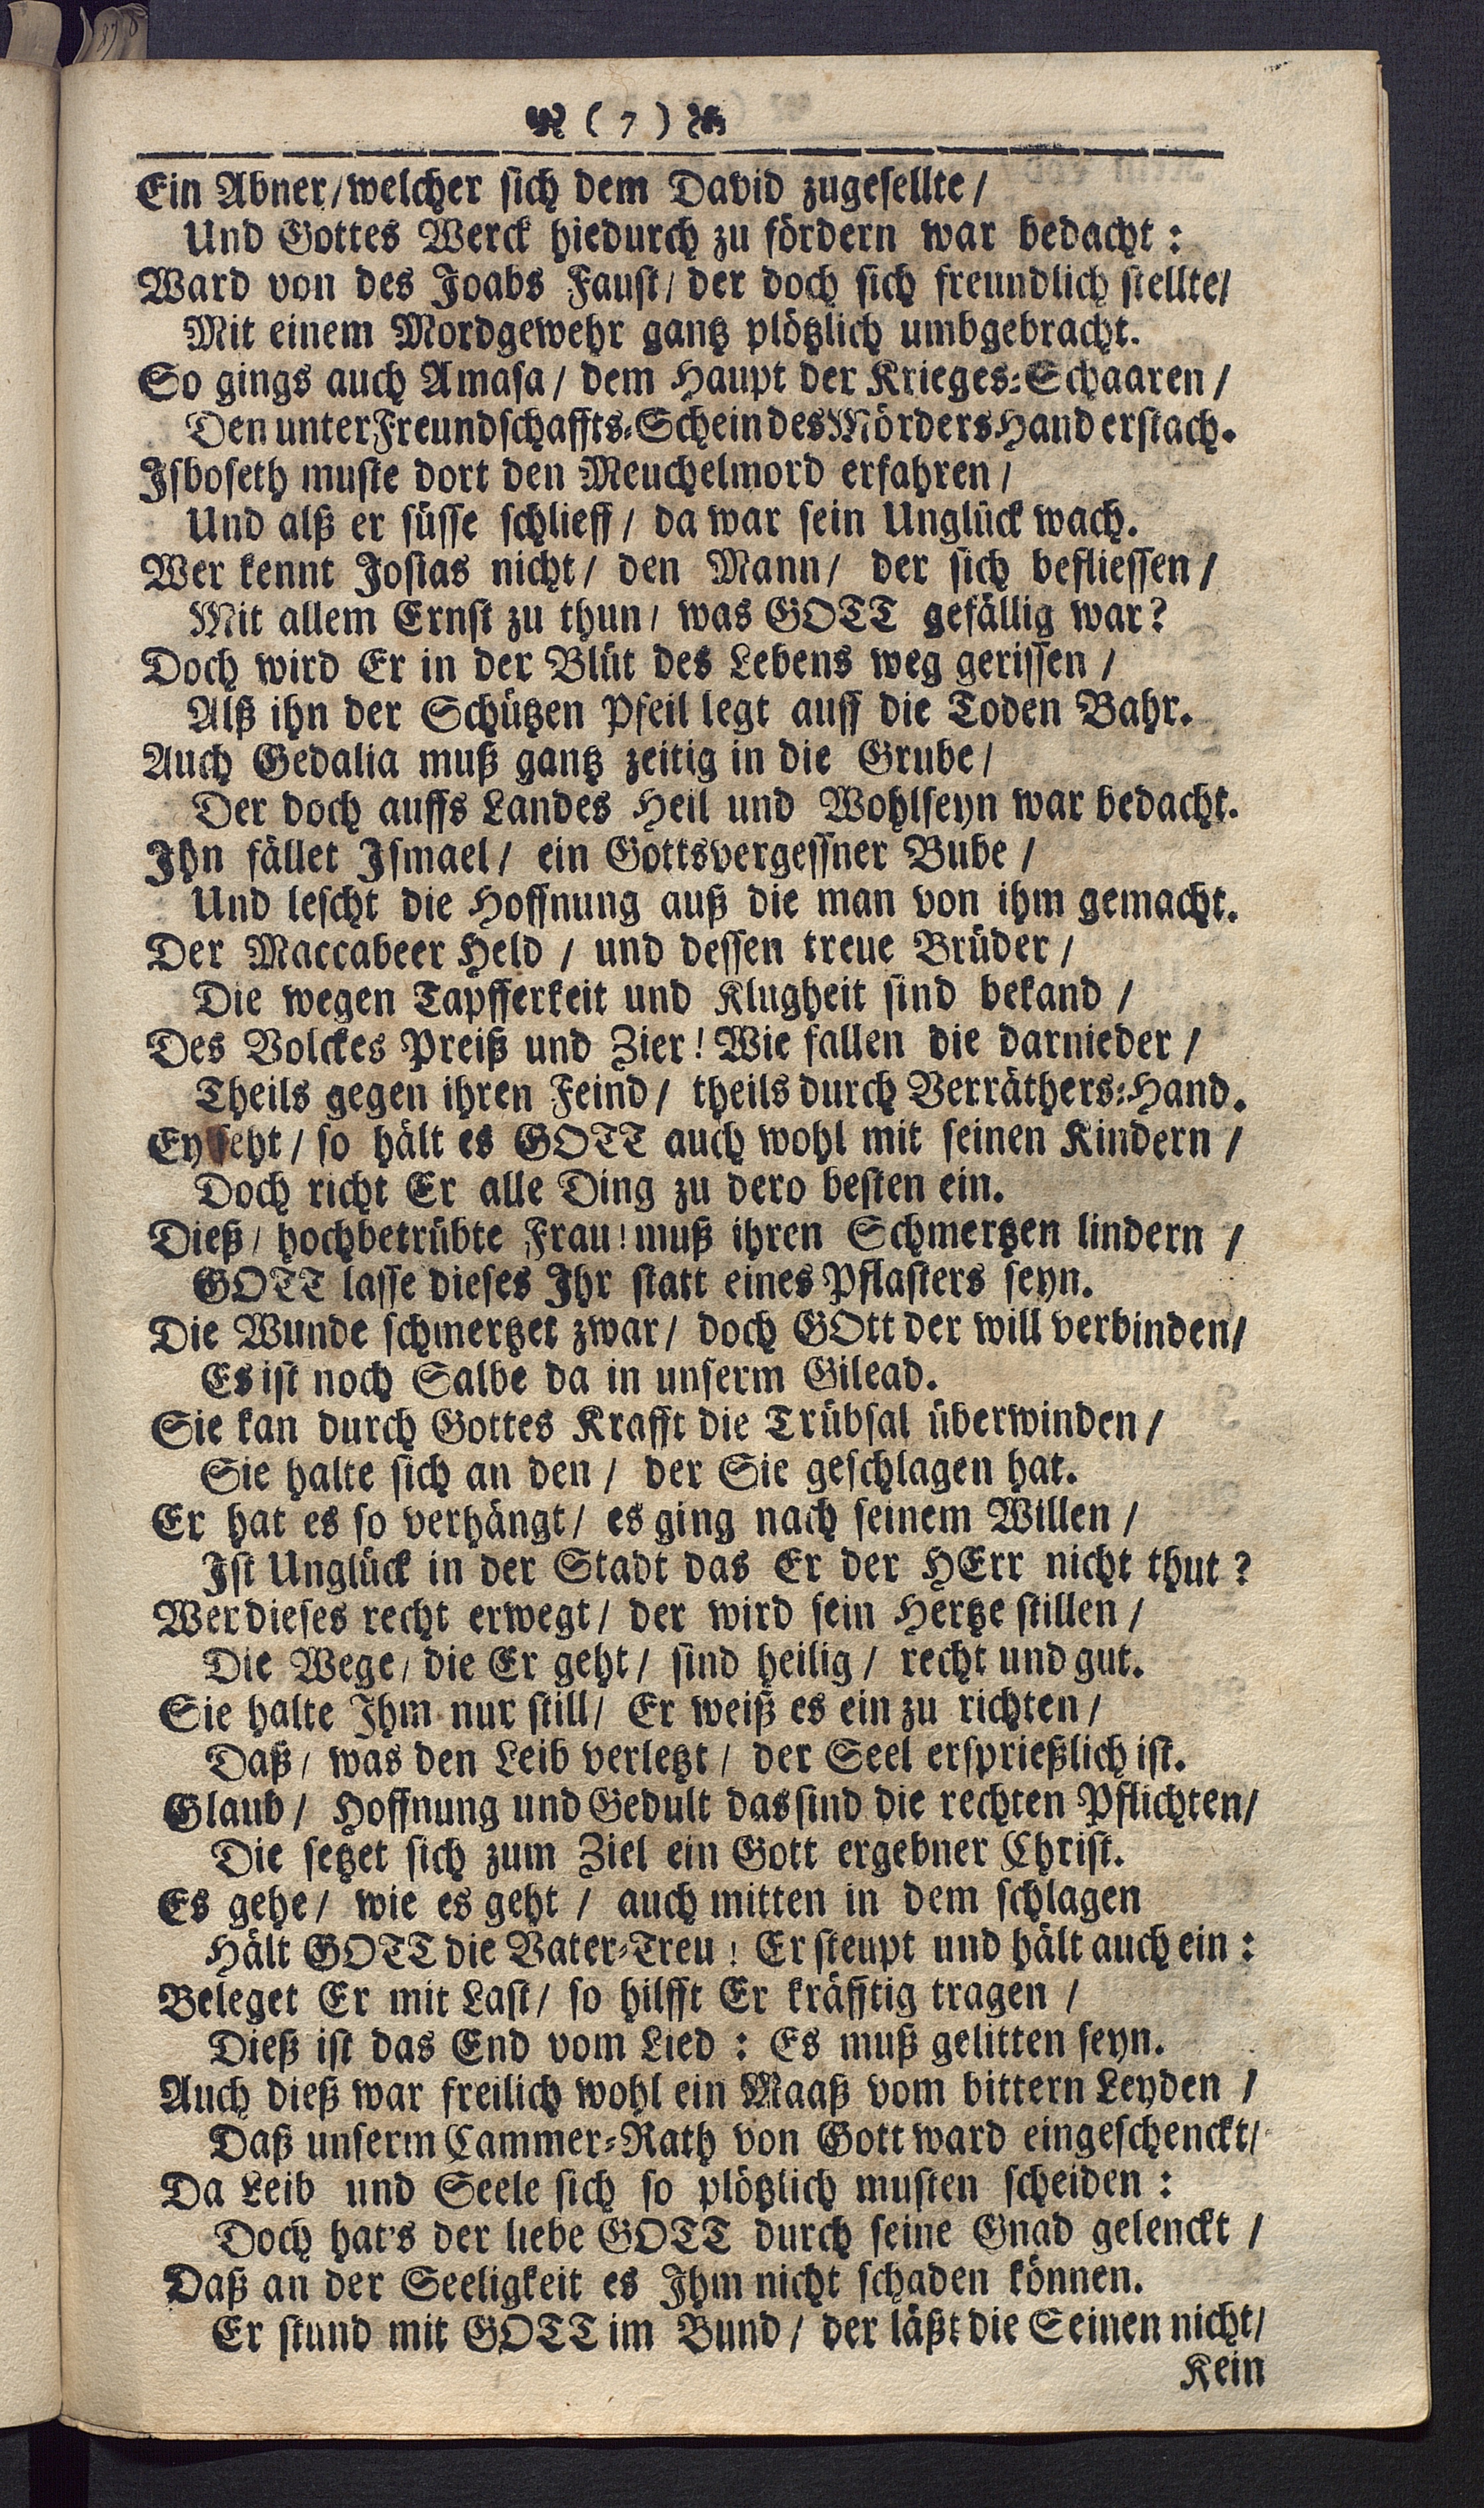 ( 7 )
Ein Abner/ welcher sich dem David zugesellte/
Und Gottes Werck hiedurch zu fördern war bedacht:
Ward von des Joabs Faust/ der doch sich freundlich stellte/
Mit einem Mordgewehr gantz plötzlich umbgebracht.
So gings auch Amasa/ dem Haupt der Krieges-Schaaren/
Den unter Freundschaffts-Schein des Mörders Hand erstach.
Isboseth muste dort den Meuchelmord erfahren/
Und alß er süsse schlieff/ da war sein Unglück wach.
Wer kennt Josias nicht/ den Mann/ der sich befliessen/
Mit allem Ernst zu thun/ was GOTT gefällig war?
Doch wird Er in der Blüt des Lebens weg gerissen/
Alß ihn der Schützen Pfeil legt auff die Toden Bahr.
Auch Gedalia muß gantz zeitig in die Grube/
Der doch auffs Landes Heil und Wohlseyn war bedacht.
Ihn fället Ismael/ ein Gottsvergessner Bube/
Und lescht die Hoffnung auß die man von ihm gemacht.
Der Maccabeer Held/ und dessen treue Brüder/
Die wegen Tapfferkeit und Klugheit sind bekand/
Des Volckes Preiß und Zier! Wie fallen die darnieder/
Theils gegen ihren Feind/ theils durch Verräthers-Hand.
Ey seht/ so hält es GOTT auch wohl mit seinen Kindern/
Doch richt Er alle Ding zu dero besten ein.
Dieß/ hochbetrübte Frau! muß ihren Schmertzen lindern/
GOTT lasse dieses Ihr statt eines Pflasters seyn.
Die Wunde schmertzet zwar/ doch GOtt der will verbinden/
Es ist noch Salbe da in unserm Gilead.
Sie kan durch Gottes Krafft die Trübsal überwinden/
Sie halte sich an den/ der Sie geschlagen hat.
Er hat es so verhängt/ es ging nach seinem Willen/
Ist Unglück in der Stadt das Er der HErr nicht thut?
Wer dieses recht erwegt/ der wird sein Hertze stillen/
Die Wege/ die Er geht/ sind heilig/ recht und gut.
Sie halte Ihm nur still/ Er weiß es ein zu richten/
Daß/ was den Leib verletzt/ der Seel ersprießlich ist.
Glaub/ Hoffnung und Gedult das sind die rechten Pflichten/
Die setzet sich zum Ziel ein Gott ergebner Christ.
Es gehe/ wie es geht/ auch mitten in dem schlagen
Hält GOTT die Vater-Treu! Er steupt und hält auch ein:
Beleget Er mit Last/ so hilfft Er kräfftig tragen/
Dieß ist das End vom Lied: Es muß gelitten seyn.
Auch dieß war freilich wohl ein Maaß vom bittern Leyden/
Daß unserm Cammer-Rath von Gott ward eingeschenckt/
Da Leib und Seele sich so plötzlich musten scheiden:
Doch hat's der liebe GOTT durch seine Gnad gelenckt/
Daß an der Seeligkeit es Ihm nicht schaden können.
Er stund mit GOTT im Bund/ der läßt die Seinen nicht/
Kein